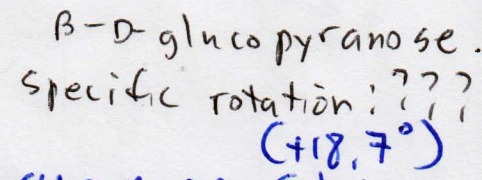 β-D-glucopyranose.
Specific rotation: ???
(+18,7°)